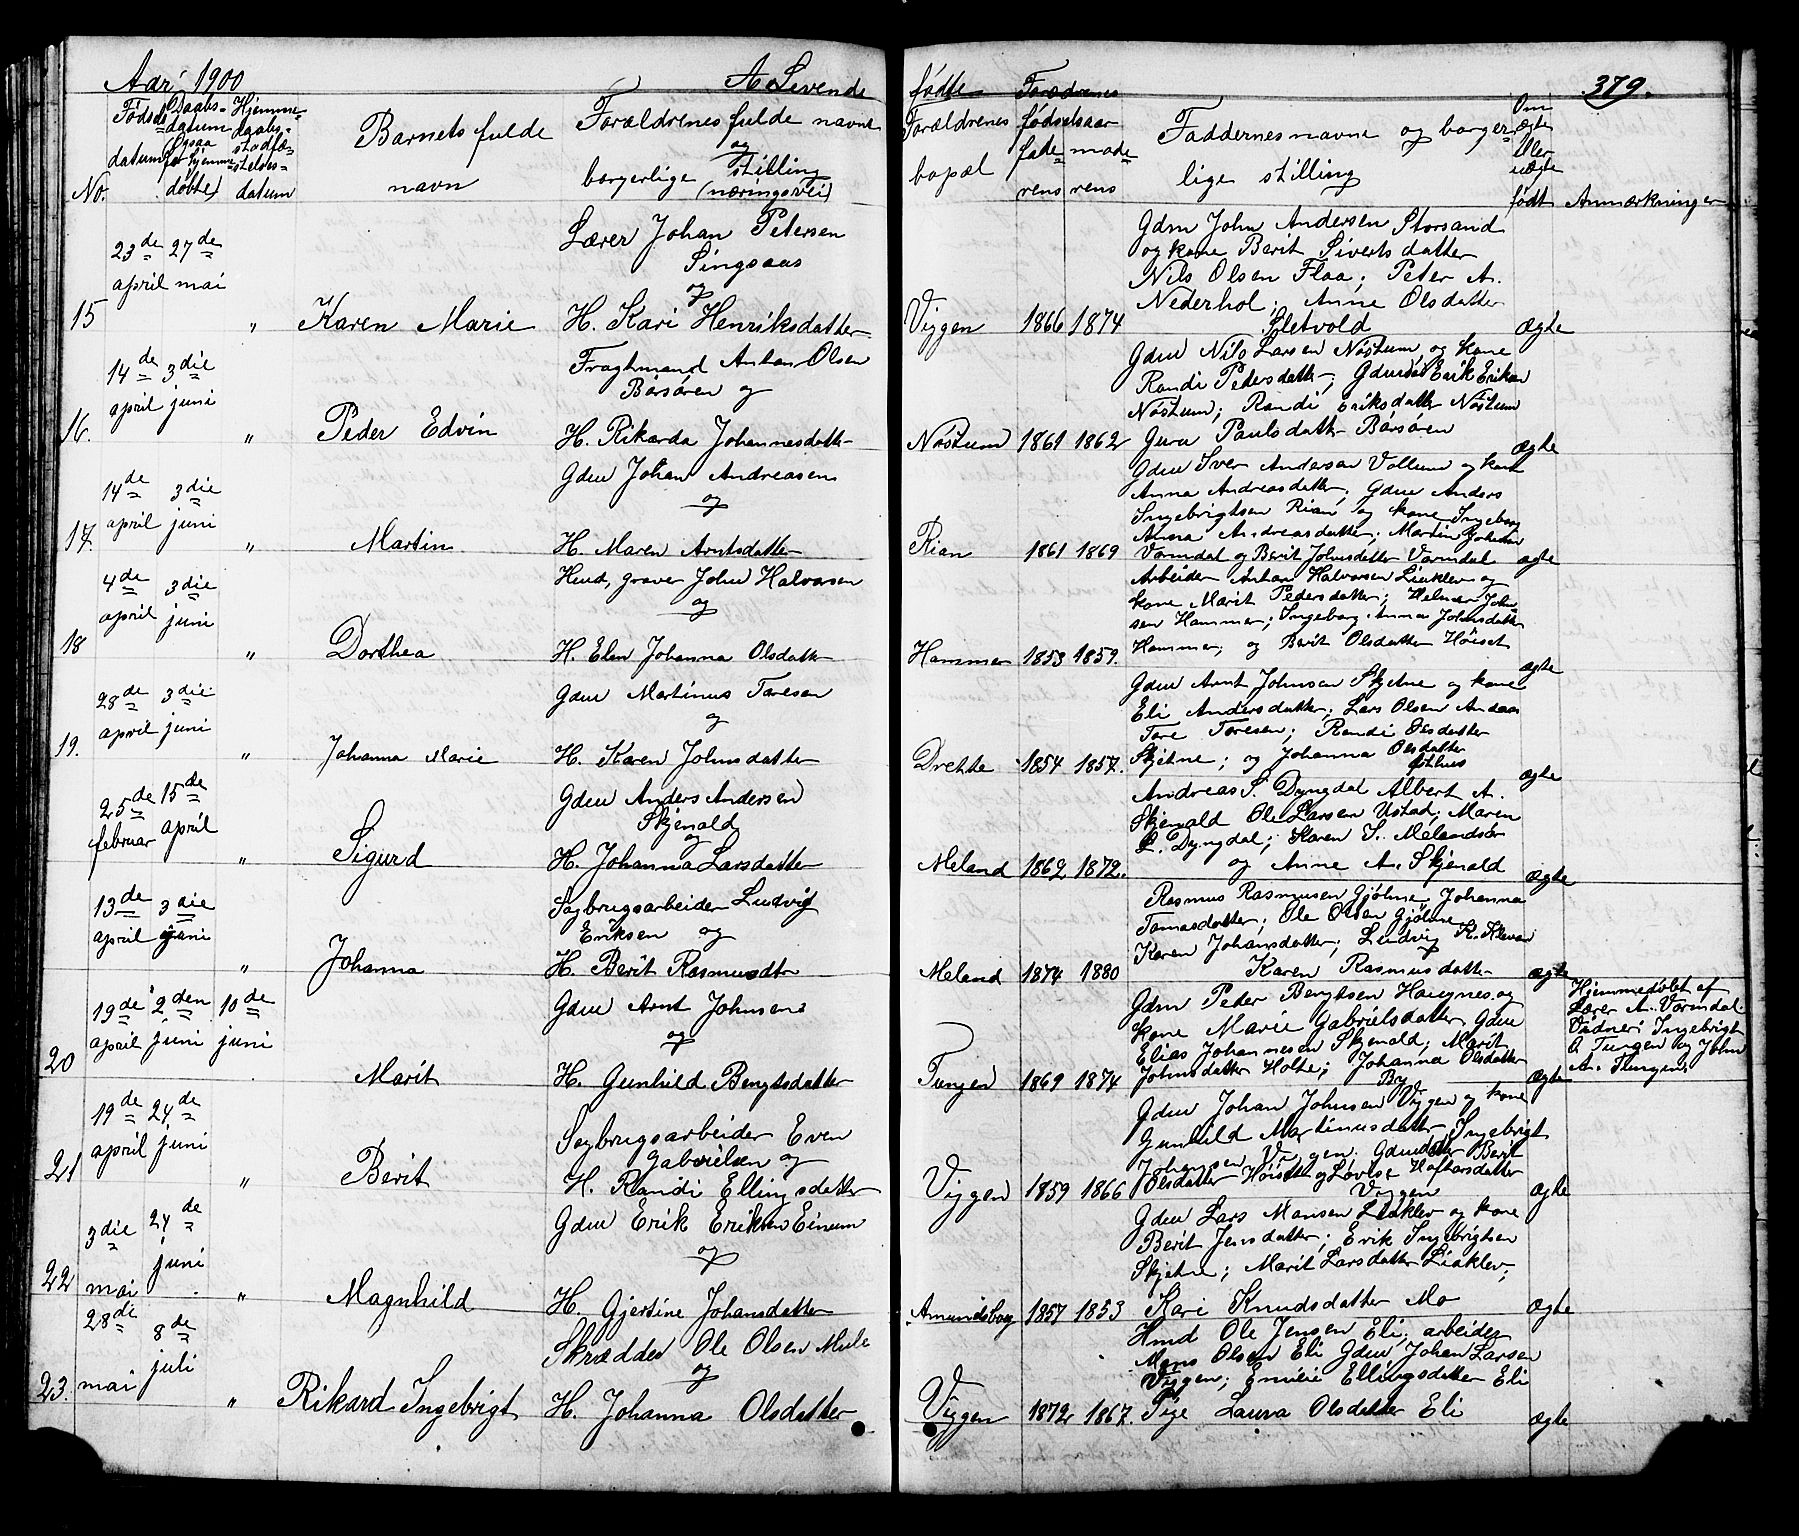 Aar 1900
A. Levende
Fødsels
datum
Daabs-
datum
Ogsaa
for hjemme
døbte)
Hjemme-
daabs-
stadfæ-
stelses-
datum
No.
Barnets fulde
navn
Forældrenes fulde navne
og
borgerlige stilling
(næringsvei)
23de april
27de mai
15
"
Karen Marie
Lærer Johan Petersen
Singsaas
og
H. Kari Henriksdatter
14de april
3die juni
16.
"
Peder Edvin
Fragtmand Anton Olsen
Børsøren og
H. Rikarda Johannesdatter
14de april
3die juni
17.
"
Martin
Gdm Johan Andreasen
og
H. Maren Arntsdatter
4de april
3die juni
18
"
Dorthea
Hmd, graver John Halvorsen
og
H. Elen Johanna Olsdatter
28de april
3die juni
19.
"
Johanna Marie
Gdm Martinus Toresen
og
H. Karen Johnsdatter
25de februar
15de april
"
Sigurd
Gdm Anders Andersen
Skjenald
og
H. Johanna Larsdatter
13de april
3die juni
"
Johanna
Sagbrugsarbeider Ludvig
Eriksen og
H. Berit Rasmusdtr
19de april
2den juni
10de juni
20
Marit
Gdm Arnt Johnsen
og
H. Gunhild Bengtsdatter
19de april
24de juni
21
"
Berit
Sagbrugsarbeider Even
Gabrielsen og
H. Randi Ellingsdatter
3die mai
24de juni
22
"
Magnhild
Gdm Erik Eriksen Einum
og
H. Gjertine Johansdatter
28di mai
8de juli
23.
"
Rikard Ingebrigt
Skrædder Ole Olsen Mule
og
H. Johanna Olsdatter
fødte
379.
Forældrenes
bopæl
Forældrenes
fødselsaar
fade-
rens
mode-
rens
Faddernes navne og borger-
lige stilling
Om
ægte
eller
uægte
født
Anmærkninger
Gdm John Andersen Storsand
og kone Berit Sivertsdatter
Nils Olsen Flaa; Peter A.
Nederhol; Anne Olsdatter
Viggen 1866 1874 Sletvold ægte
Gdm Nils Larsen Nøstum og kone
Randi Petersdatter; Erik Eriksen
Nøstum; Randi Eriksdatter Nøstum
Nøstum 1861 1862 Guru Paulsdatter Børsøren ægte
Gdm Iver Andersen Vollum og kone
Anna Andreasdatter; Gdm Anders
Ingebrigtsen Rian og kone Ingeborg
Anna Andreasdatter; Martin Johnsen
Rian 1861 1869 Varmdal og Berit Johnsdatter Varmdal ægte
Arbeider Anton Halvorsen Liaklev og
kone Marit Pedersdatter; Helmer John
sen Hammer; Ingeborg Anna Johnsdatter
Hammer 1853 1859. Hammer; og Berit Olsdatter Høiset ægte
Gdm Arnt Johnsen Skjetne og kone
Eli Andersdatter; Lars Olsen
Tore Toresen; Randi Olsdatter
Drette 1854 1857. Skjetne; og Johanna Olsdatter ægte
Andreas S. Dyngdal Albert A.
Skjenald Ole Larsen Ustad; Maren
L. Dyngdal; Karen S. Melandsør
Meland 1862 1872. og Anne A. Skjenald ægte
Rasmus Rasmusen Gjølme Johanna
Tomasdatter; Ole Olsen Gjølme
Karen Johansdatter; Ludvig K. Klevan
Meland 1874 1880 Karen Rasmusdatter ægte
Gdm Peder Bengtsen Haugnes og
kone Marie Gabrielsdatter Gdm
Elias Johannesen Skjenald; Marit
Johnsdatter Holte; Johanna Olsdatter
Tungen 1869 1874 By ægte
Hjemmedøbt af
Lærer A. Varmdal
Vidner: Ingebrigt
O Tungen og John
A. Tungen.
Gdm Johan Johnsen Viggen og kone
Gunhild Martinusdatter Ingebrigt
Johansen Viggen. Berit
Olsdatter Høiset og Lovise Hafthorsdatter
Viggen 1859 1866 Viggen ægte
Gdm Lars Monsen Liaklev og kone
Berit Jensdatter; Erik Ingebrigtsen
Skjetne; Marit Larsdatter Liaklev;
Amundsbog 1857 1853 Kari Knudsdatter Mo ægte
Hmd Ole Jensen Eli; arbeider
Mons Olsen Eli Gdm Johan Larsen
Viggen; Emilie Ellingsdatter Eli
Viggen 1872 1867. Pige Laura Olsdatter Eli ægte